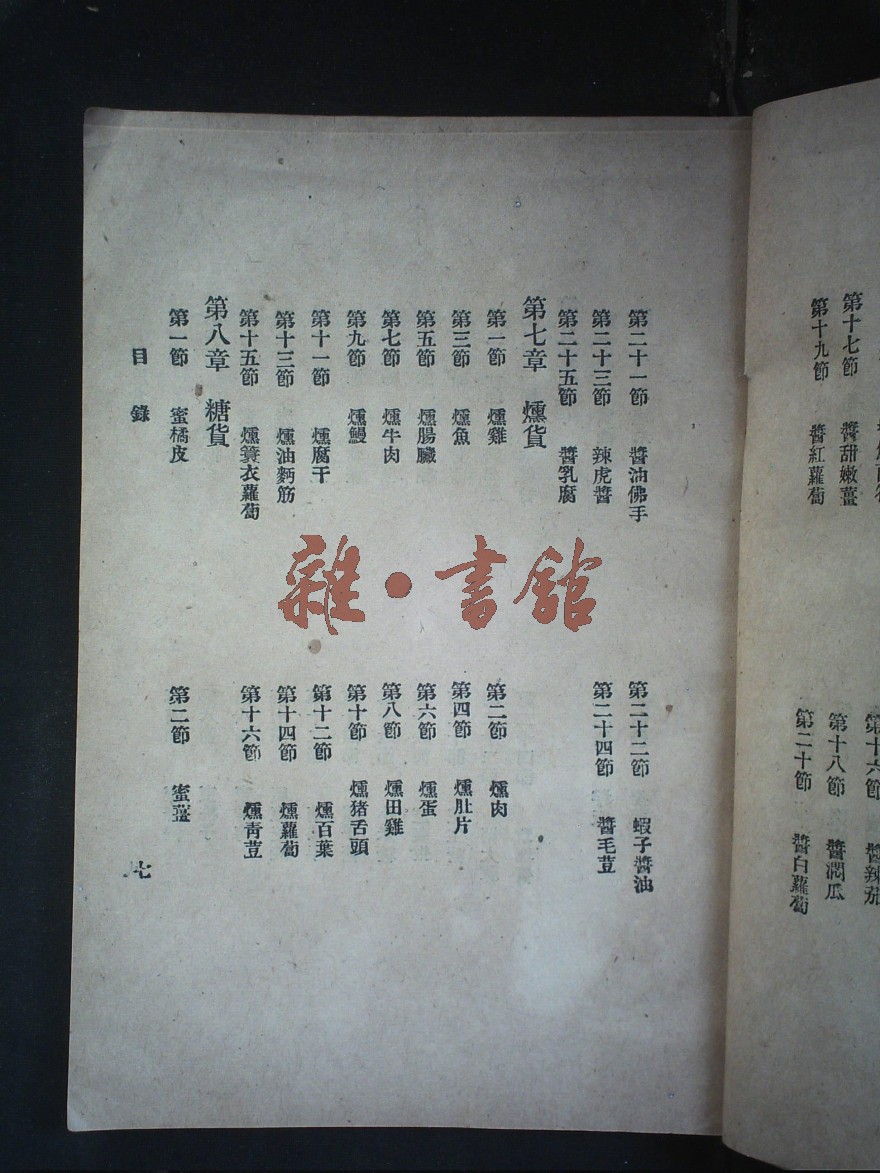 第十七節　醬甜嫩薑
第十八節　醬潤瓜
第十九節　醬紅蘿蔔
第二十節　醬白蘿蔔
第二十一節　醬油佛手
第二十二節　蝦子醬油
第二十三節　辣虎醬
第二十四節　醬毛荳
第二十五節　醬乳腐
第七章　燻貨
第一節　燻雞
第二節　燻肉
第三節　燻魚
第四節　燻肚片
第五節　燻腸臟
第六節　燻蛋
第七節　燻牛肉
第八節　燻田雞
第九節　燻鰻
第十節　燻猪舌頭
第十一節　燻腐干
第十二節　燻百葉
第十三節　燻油麪筋
第十四節　燻蘿蔔
第十五節　燻簑衣蘿蔔
第十六節　燻靑荳
第八章　糖貨
第一節　蜜橘皮
第二節　蜜薑
目錄
七
雜·書館